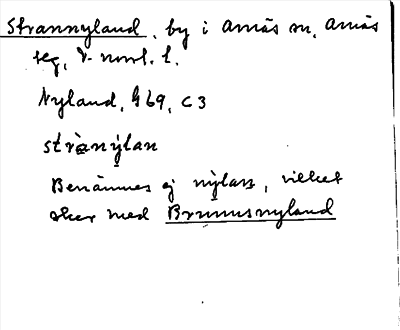 Strannyland, by i Arnäs sn, Arnäs
tg, V-norrl. l.
Nyland, H69, C3
strànýlan
Benämnes ej nýlan, vilket
sker med Brunnusnyland